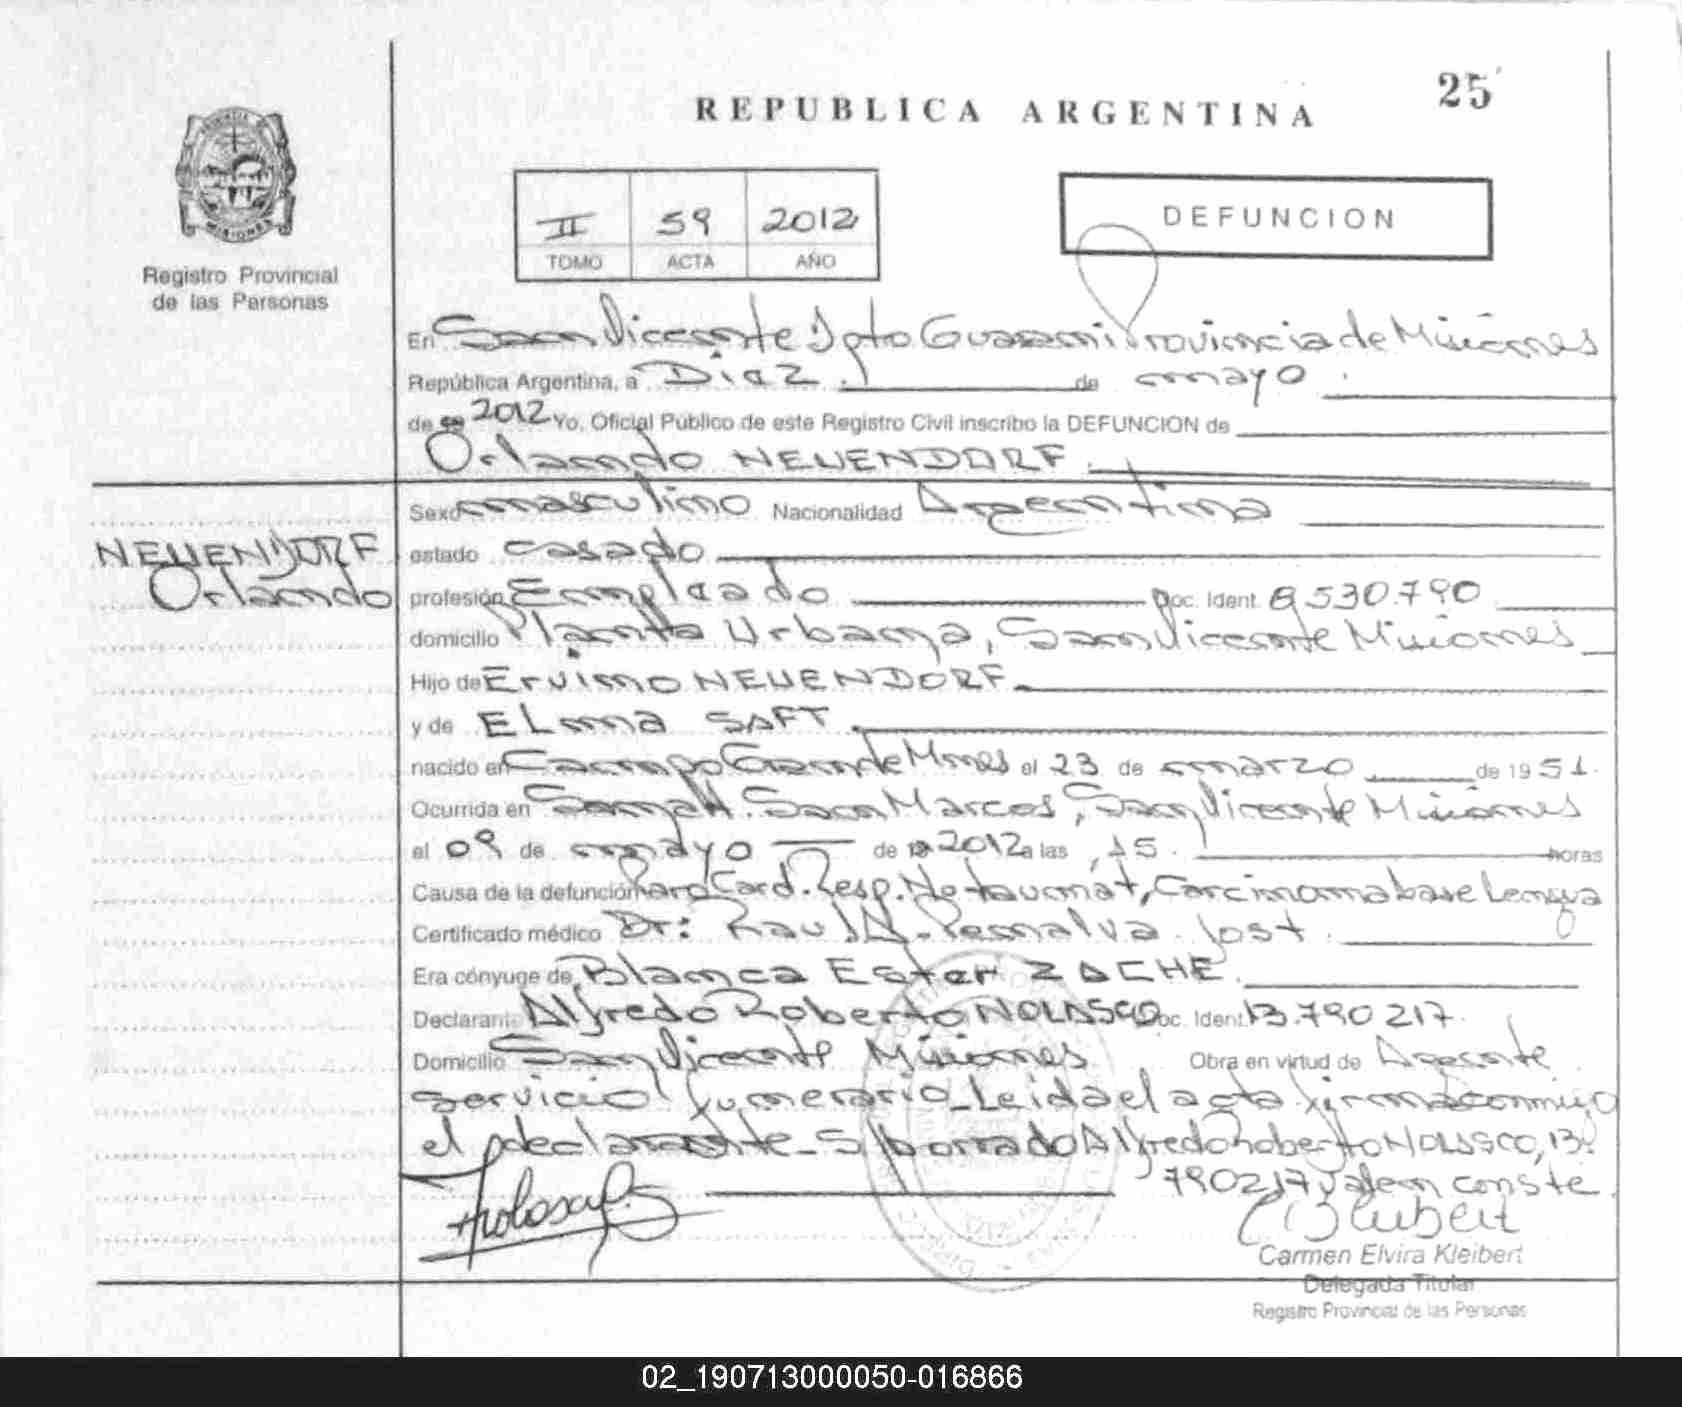 25
REPUBLICA ARGENTINA
II 59 2012
TOMO ACTA AÑO
DEFUNCION
Registro Provincial
de las Personas
En San Vicente Dpto Guaraní Provincia de Misiones
República Argentina, a Diaz. de mayo.
de 2012 Yo, Oficial Público de este Registro Civil inscribo la DEFUNCION de
Orlando NEUENDORF.
NEUENDORF
Orlando
Sexo masculino Nacionalidad Argentina
estado casado
profesión Empleado Doc. Ident. 8.530.790
domicilio Planta Urbana, San Vicente Misiones
Hijo de Ervino NEUENDORF.
y de ELma SAFT.
nacido en Campo Grande Mnes el 23 de marzo de 1951.
Ocurrida en San Marcos, San Vicente Misiones
el 09 de mayo de 2012 a las 15. horas
Causa de la defunción Paro Card. Resp. No traumát, Carcinoma base Lengua
Certificado médico Dr: Raul A. Pernalva Jost.
Era cónyuge de Blanca Ester ZACHE.
Declarante Alfredo Roberto NOLASCO Doc. Ident. 13.790 217.
Domicilio San Vicente Misiones Obra en virtud de Agente
servicio funerario_Leida el acta firma conmigo
el declarante_S/borrado Alfredo Roberto NOLASCO, 13.
790217 valen conste.
Carmen Elvira Kleibert
Delegada Titular
Registro Provincial de las Personas
02_190713000050-016866